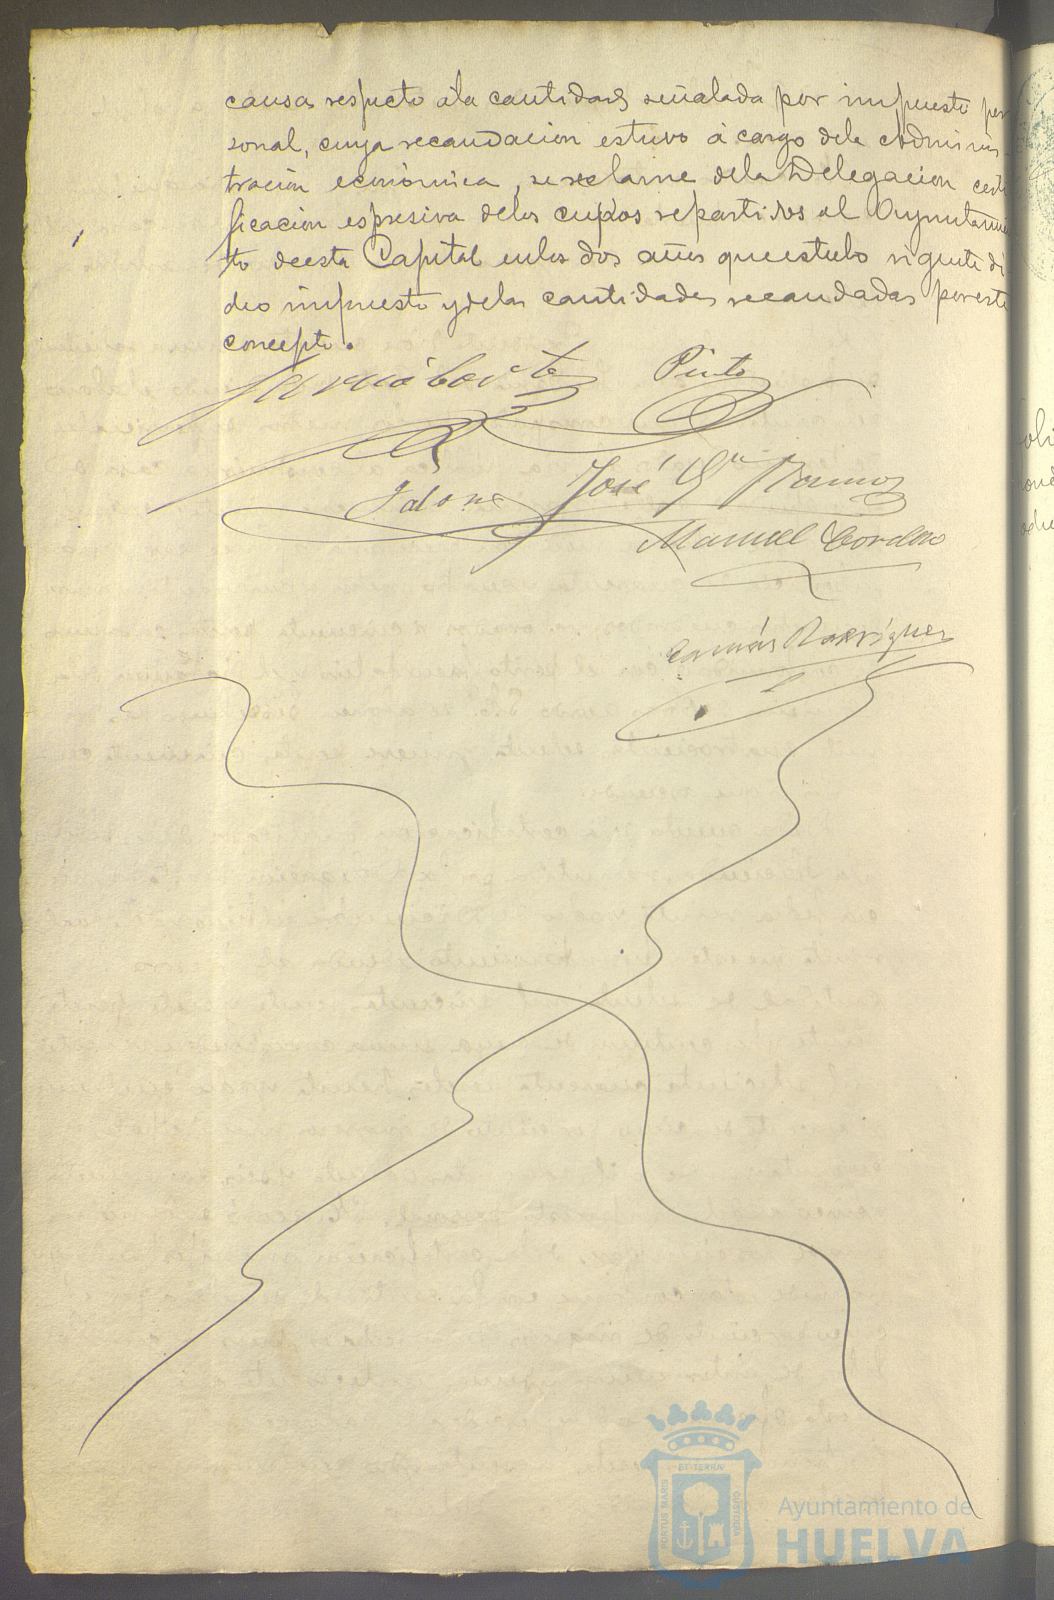 causa respecto ála cantidad señalada por impuesto per
sonal, cuya recaudacion estuvo á cargo dela Adminis-
tracion económica, sereclame dela Delegacion certi
ficacion espresiva delos cupos repartidos al Ayuntamien
to deesta Capital enlos dos años queestubo vigente di
cho impuesto ydelas cantidades recaudadas poreste
concepto.
Pinto
José Gª Ramos
Manuel Cordero
Tomás Rodríguez
PORTUS MARIS
ET TERRÆ
CUSTODIA
Ayuntamiento de
HUELVA